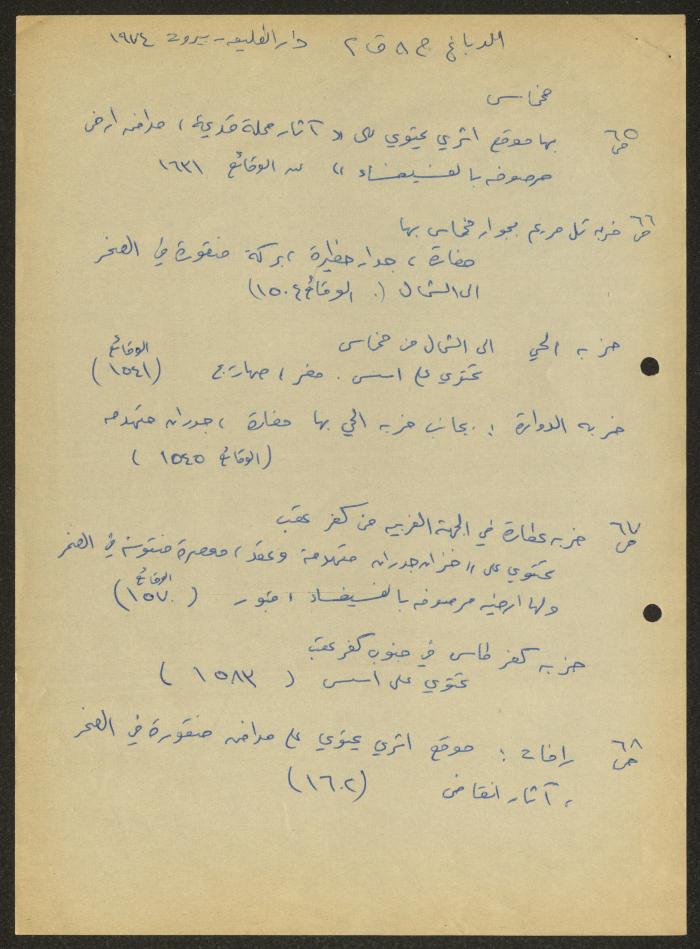 الدباغ ج ٨ ق ٢ دار الطليعه - بيروت ١٩٧٤
مخماس
ص ٦٥ بها موقع اثري يحتوي على « آثار محلة قديمة ، مدافن ارض
مرصوفه بالفسيفساء » عن الوقائع ١٦٣١
ص ٦٦ خربه تل مريم بجوار مخماس بها
مغارة ، جدار حظيرة ، بركة منقورة في الصخر
الى الشمال ( الوقائع ١٥٠٤)
خربه الحي الى الشمال من مخماس
تحتوي على اسس . مغر ، صهاريج (الوقائع ١٥٤١)
خربه الدوارة : بجانب خربه الحي بها مغارة ، جدران متهدمه
(الوقائع ١٥٤٥ )
ص ٦٧ خربه عطارة في الجهة الغربيه من كفر عقب
تحتوي على « خزان جدران متهدمة وعقد ، ومعصرة منقوشة في الصخر
ولها ارضيه مرصوفه بالفسيفساء ، قبور ( الوقائع ١٥٧٠)
خربه كفر طاس في جنوب كفر عقب
تحتوي على اسس ( ١٥٨٣ )
ص ٦٨ رافات : موقع اثري يحتوي على مدافن منقورة في الصخر
، آثار انقاض (١٦٠٢)